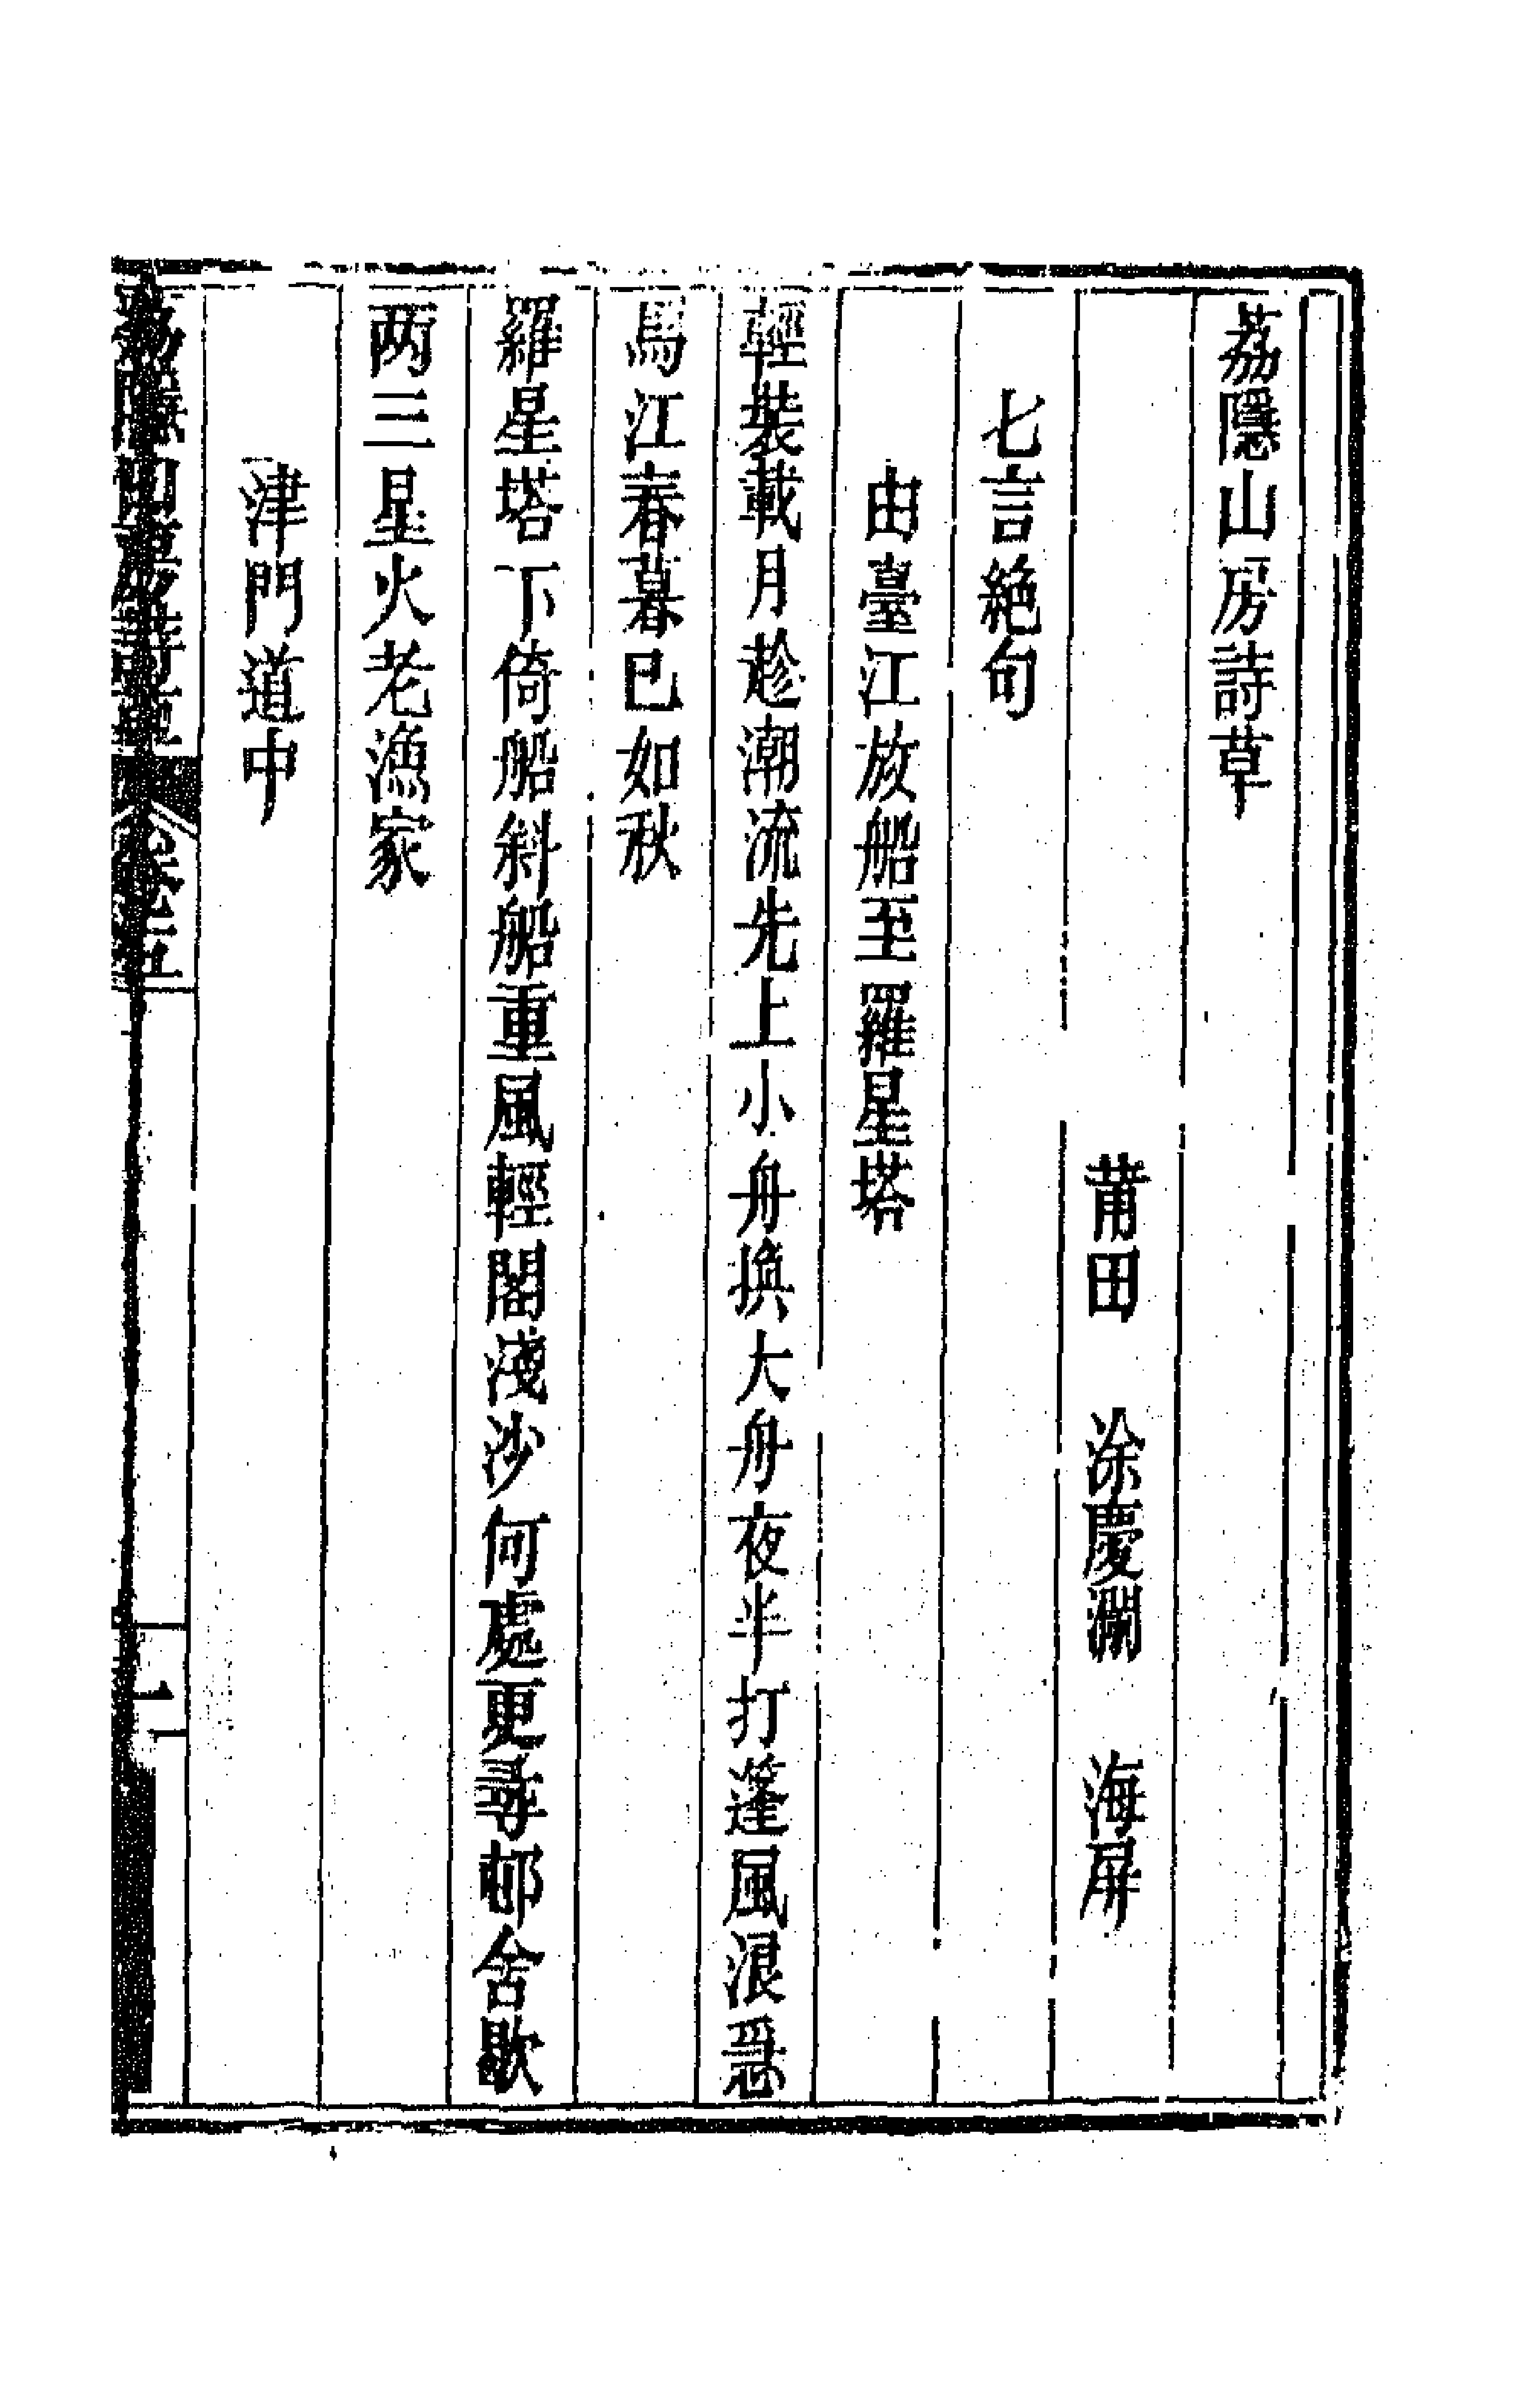 荔隱山房詩草
莆田　涂慶瀾　海屏
七言絶句
由臺江放船至羅星塔
輕裝載月趁潮流先上小舟換大舟夜半打篷風浪惡
馬江春暮已如秋
羅星塔下倚船斜船重風輕閣淺沙何處更尋邨舍歇
两三星火老漁家
津門道中
荔隱山房詩草　卷五　一